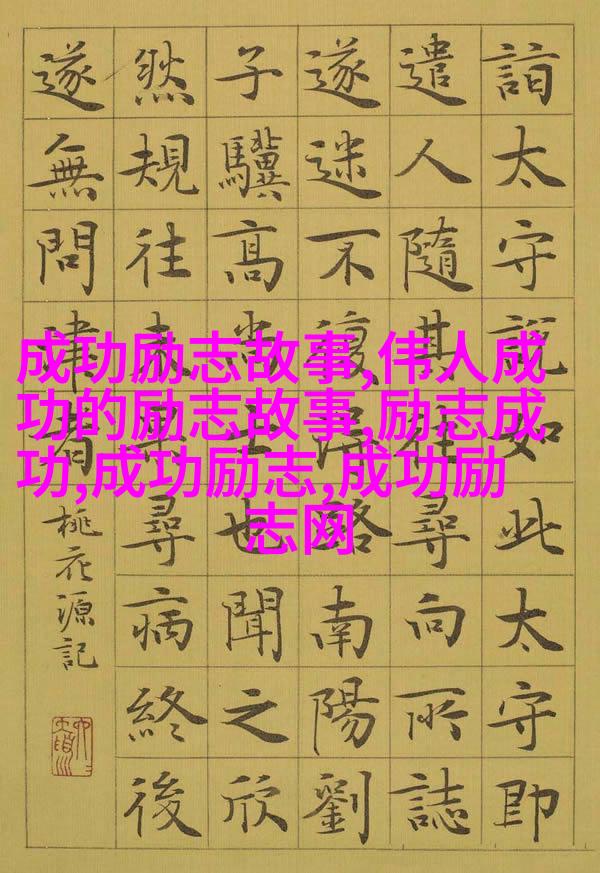 詣太守說如此太守即
遣人隨其往尋向所誌
遂迷不復得路南陽劉
子驥高尚士也聞之欣
然規往未果尋病終後
遂無問津者
桃花源記
成功励志故事,伟人成
功的励志故事,励志成
功,成功励志,成功励
志网